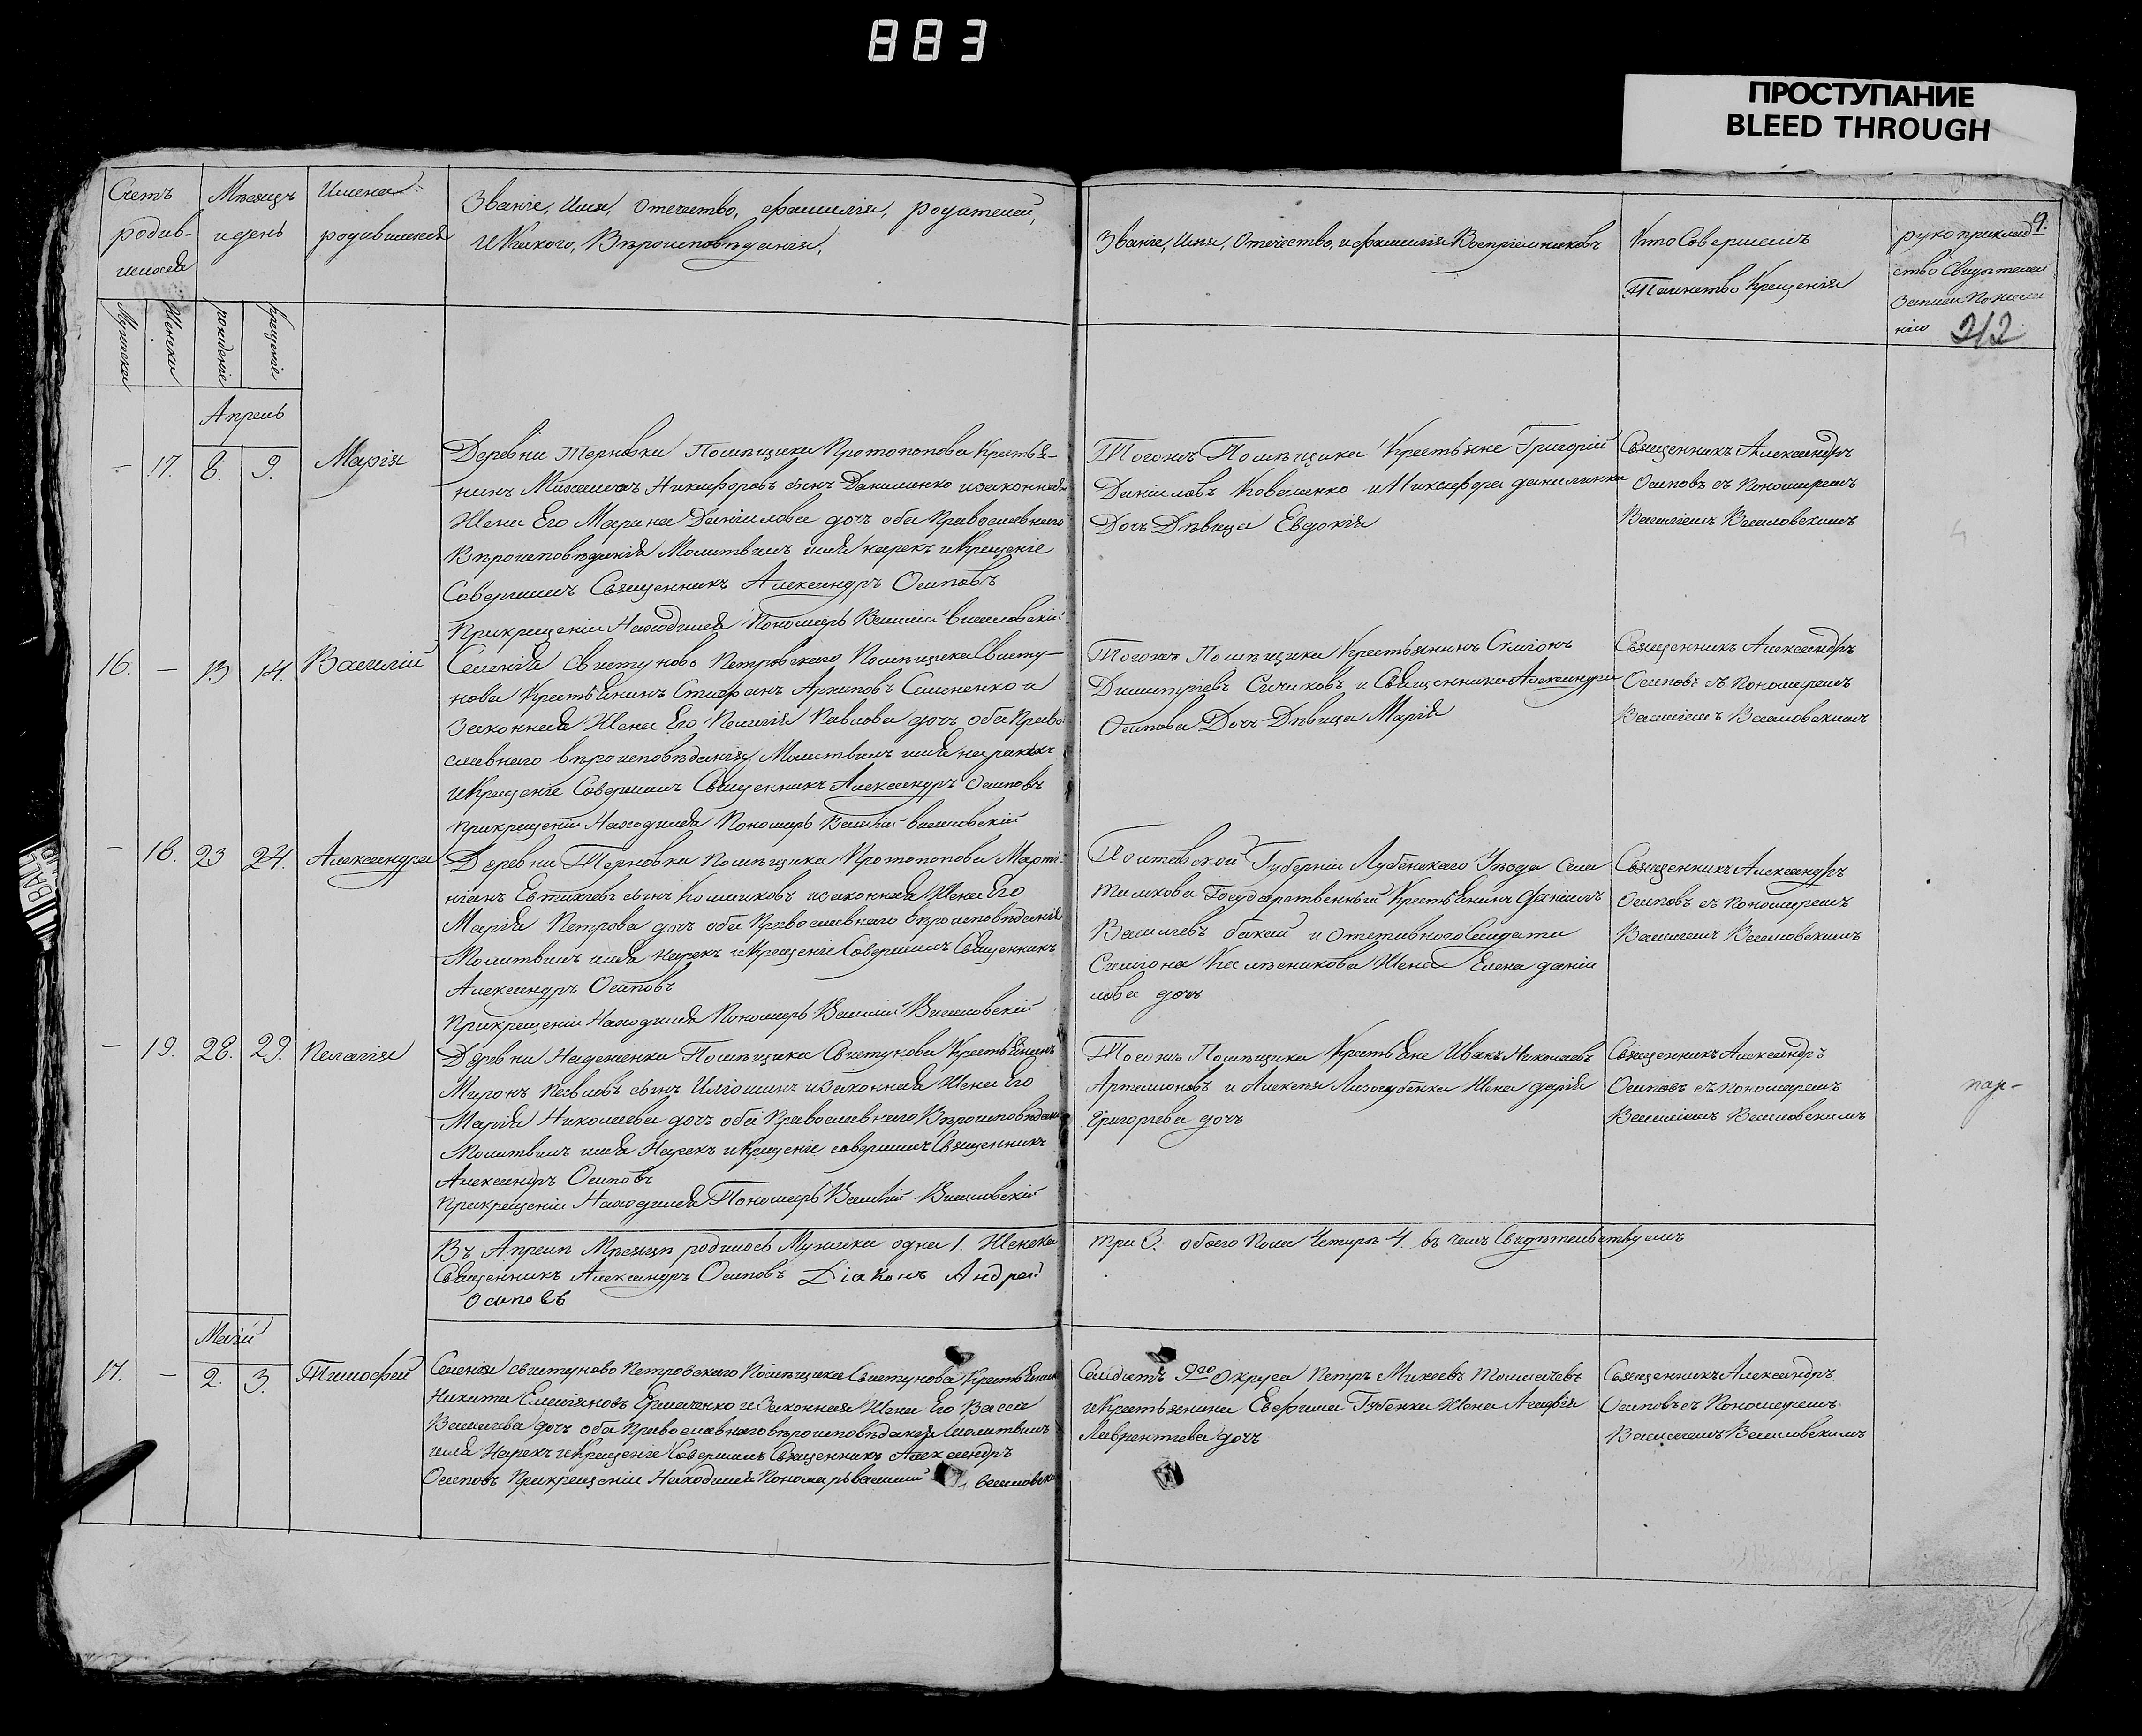 883
ПРОСТУПАНИЕ
BLEED THROUGH
Счетъ родив-шихся
Мѣсяцъ и день
Имена родившихся
Званіе, Имя, Отечество, фамилія, родителей,
И Какого, Вѣроисповѣданія,
Званіе, Имя, Отечество, и фамилія Воспріемниковъ
Кто Совершалъ
Таинство Крещенія
рукоприклад
ство Свидѣтелей
Записи По жела
нію
9.
212
Мужеска
Женска
рожденіе
Крещеніе
Апрель
– 17. 8. 9. Марія
Деревни Терновки Помѣщика Протопопова Крестья-
нинъ Михаилъ Никифоровъ сынъ Данилинко и законная
Жена Его Марана Даніилова дочь оба Православнаго
Вѣроисповѣданія Молитвилъ имя нарекъ и Крещеніе
Совершилъ Священникъ Александръ Осиповъ
Прикрещеніи Находился Пономарь Василій Василовскій
Тогожъ Помѣщика Крестьяне Григорій
Даніиловъ Коваленко и Никифора данилинка
Дочь Дѣвица Евдокія
Священникъ Александръ
Осиповъ съ Пономаремъ
Василіемъ Василовскимъ
16. – 13 14. Василій
Селенія Свистуново Петровскаго Помѣщика Свисту-
нова Крестьянинъ Стефанъ Архиповъ Семененко и
Законная Жена Его Пелагія Павлова дочь оба Право
славнаго вѣроисповѣданія Молитвилъ имя нарекъ
и Крещеніе Совершилъ Священникъ Александръ Осиповъ
прикрещеніи Находился Пономарь Василій Василовскій
Тогожъ Помѣщика Крестьянинъ Симіонъ
Димитріевъ Сичиковъ и Священника Александра
Осипова Дочь Дѣвица Марія
Священникъ Александръ
Осиповъ съ Пономаремъ
Василіемъ Василовскимъ
– 18. 23 24. Александра
Деревни Терновки помѣщика Протопопова Марти-
ніанъ Евтихіевъ сынъ Колпаковъ и законная Жена Его
Марія Петрова дочь оба Православнаго вѣроисповѣданія
Молитвилъ имя Нарекъ и Крещеніе Совершилъ Священникъ
Александръ Осиповъ
прикрещеніи Находился Пономарь Василій Василовскій
Полтавской Губерніи Лубенскаго Уѣзда Села
Государственный Крестьянинъ
Василіевъ и Отставного Солдата
Симіона Жена Елена даніи
лова дочь
Священникъ Александръ
Осиповъ съ Пономаремъ
Василіемъ Василовскимъ
– 19. 28. 29. Пелагія
Деревни Надеженки Помѣщика Свистунова Крестьянинъ
Миронъ Павловъ сынъ и законная Жена Его
Марія Николаева дочь оба Православнаго Вѣроисповѣданія
Молитвилъ имя Нарекъ и Крещеніе совершилъ Священникъ
Александръ Осиповъ
прикрещеніи Находился Пономарь Василій Василовскій
Тогожъ Помѣщика Крестьяне Иванъ Николаевъ
Артамоновъ и Алексѣя Лизогубенка Жена дарія
Григоріева дочь
Священникъ Александръ
Осиповъ съ Пономаремъ
Василіемъ Василовскимъ
пар-
Въ Апрелѣ Мѣсяцѣ родилось Мужеска одна 1. Женска
три 3. обоего Пола Четырѣ 4. въ чемъ Свидѣтельствуемъ
Священникъ Александръ Осиповъ Діаконъ Андрей
Осиповъ
Маій
17. – 2. 3. Тимофей
Селенія свистуново Петровскаго Помѣщика Свистунова Крестьянинъ
Никита Емиліяновъ Ермаченко и Законная Жена Его Васса
Василіева дочь оба Православнаго вѣроисповѣданія Молитвилъ
имя Нарекъ и Крещеніе Совершилъ Священникъ Александръ
Осиповъ Прикрещеніи Находился Пономарь василій василовскій
Солдатъ 9го Округа Петръ Михеевъ Толмачевъ
и Крестьянина Евфима Губенка Жена Агафія
Лаврентіева дочь
Священникъ Александръ
Осиповъ съ Пономаремъ
Василіемъ Василовскимъ